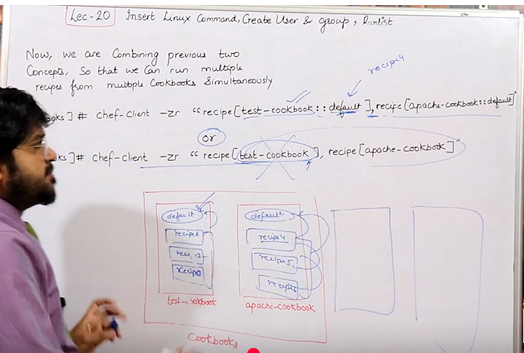 Lec-20 Insert Linux Command, Create User & group, Runlist
Now, we are Combining previous two
Concepts, So that we Can run multiple
recipes from multiple Cookbooks Simultaneously
recipe4
ooks]# chef-client -zr "recipe[test-cookbook::default], recipe[apache-cookbook::default]"
or
ks]# chef-client -zr "recipe[test-cookbook], recipe[apache-cookbook]"
default default
recipe4
recipe5
test-cookbook apache-cookbook
Cookbooks